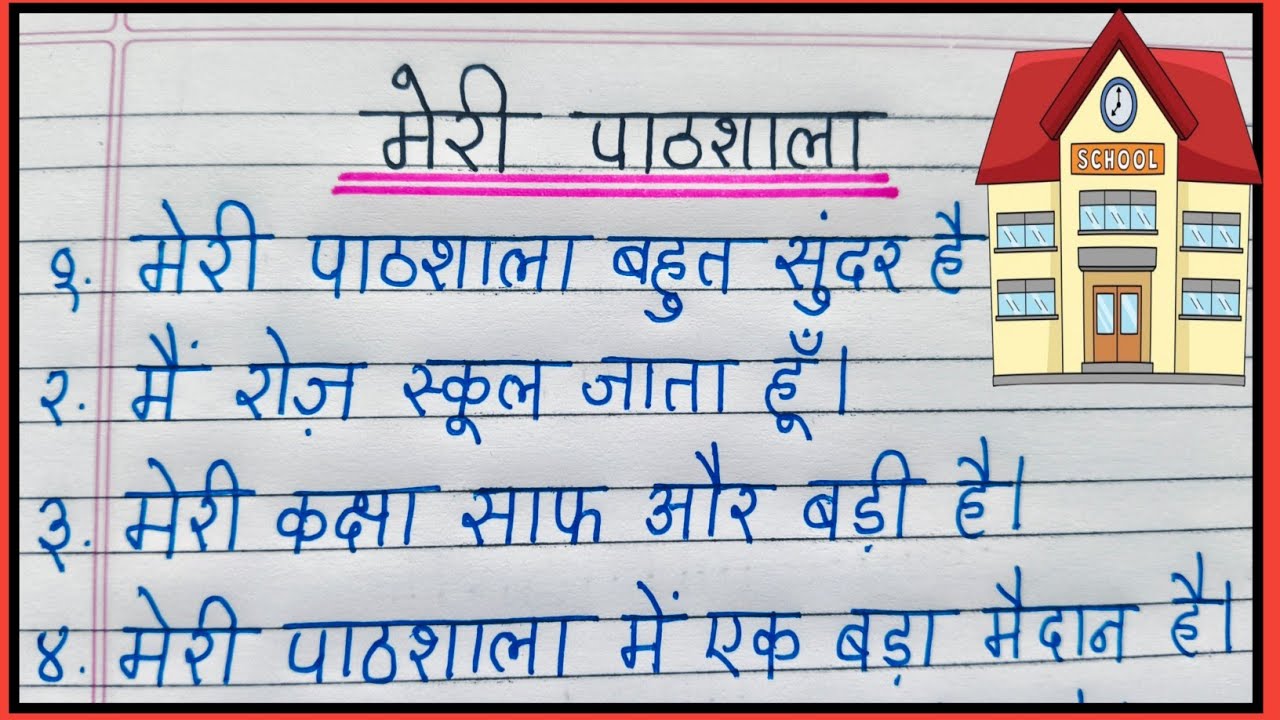 मेरी पाठशाला
SCHOOL
१. मेरी पाठशाला बहुत सुंदर है
२. मैं रोज़ स्कूल जाता हूँ।
३. मेरी कक्षा साफ और बड़ी है।
४. मेरी पाठशाला में एक बड़ा मैदान है।